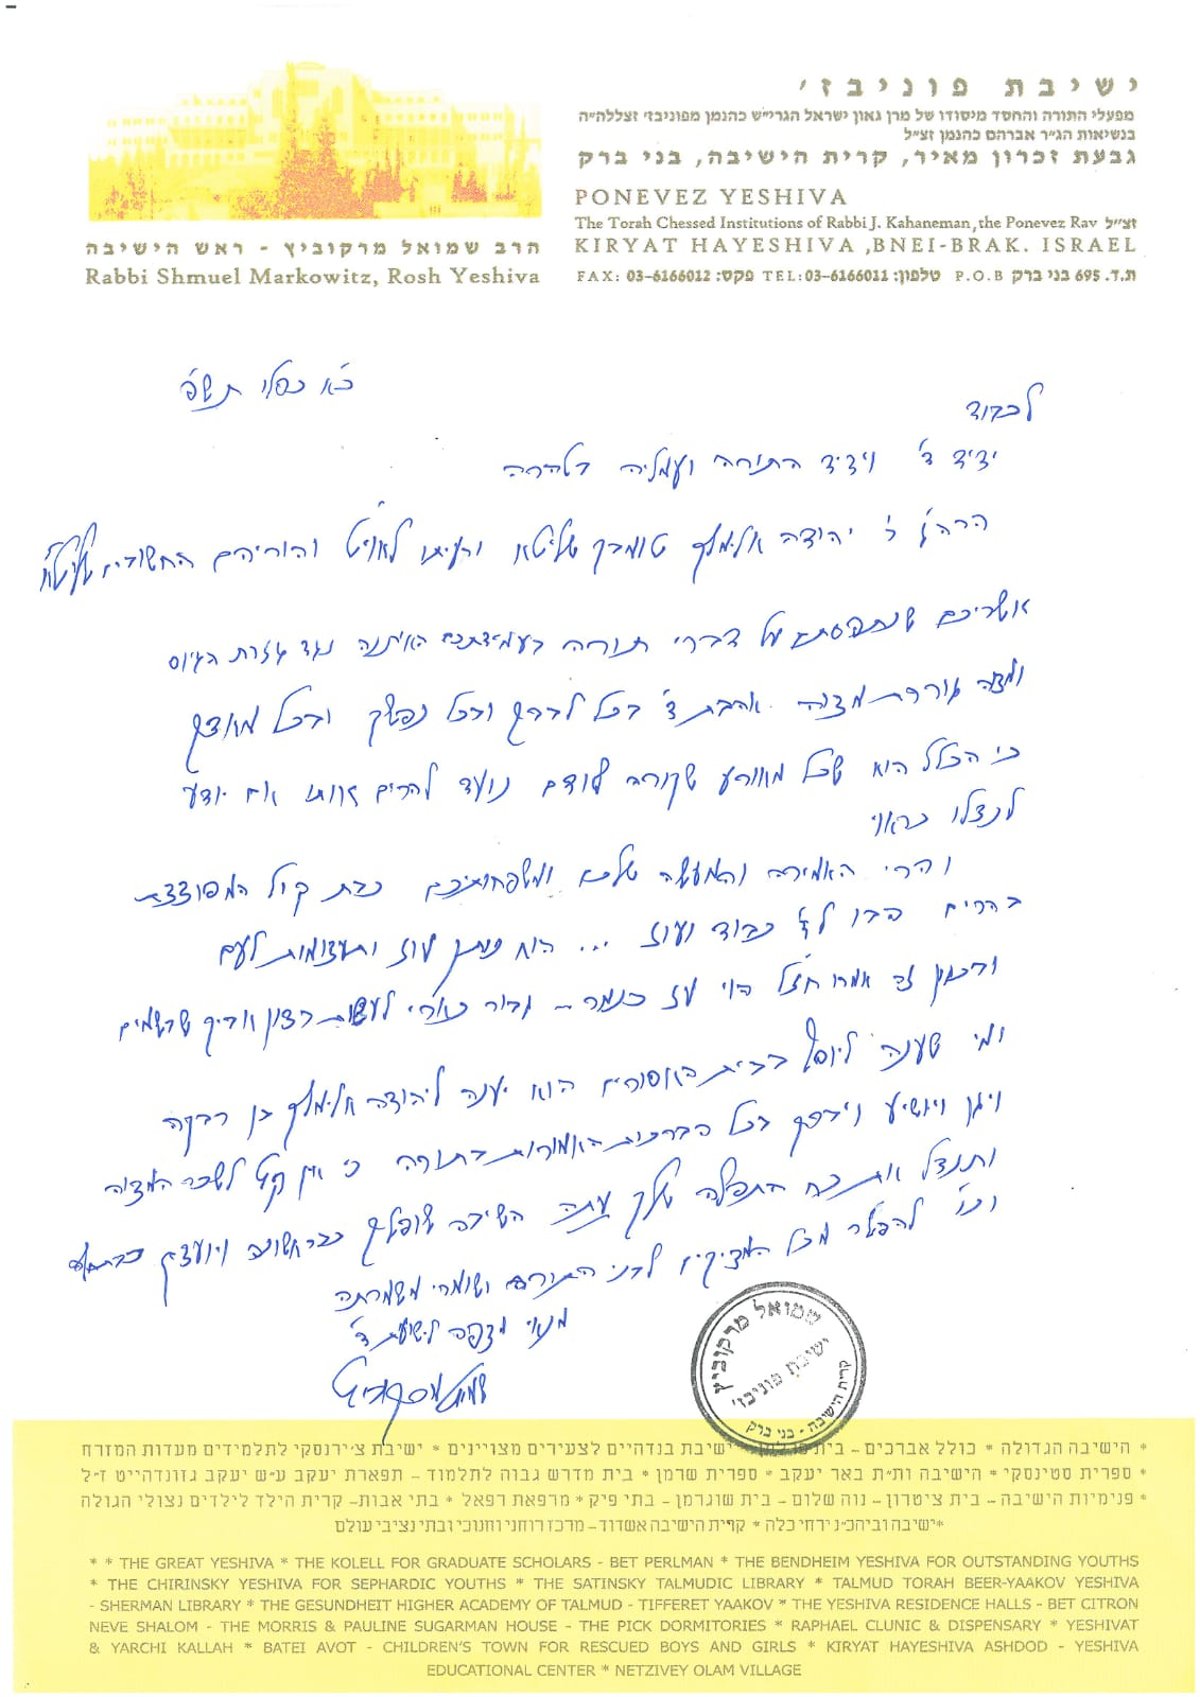 ישיבת פוניבז'
מפעלי התורה והחסד מיסודו של מרן גאון ישראל הגרי״ש כהנמן מפוניבז׳ זצללה״ה
בנשיאות הג״ר אברהם כהנמן זצ״ל
גבעת זכרון מאיר, קרית הישיבה, בני ברק
PONEVEZ YESHIVA
The Torah Chessed Institutions of Rabbi J. Kahaneman, the Ponevez Rav זצ״ל
KIRYAT HAYESHIVA ,BNEI-BRAK. ISRAEL
FAX: 03-6166012 :פקס TEL:03-6166011 :טלפון P.O.B ת.ד. 695 בני ברק
הרב שמואל מרקוביץ - ראש הישיבה
Rabbi Shmuel Markowitz, Rosh Yeshiva
כ״א כסלו תש״פ
לכבוד
ידיד ד׳ וידיד התורה ועמליה בטהרה
הרה״ג ר׳ יהודה אלימלך שליט״א ורעיתו לאוי״ט והוריהם החשובים שליט״א
אשריכם שנתפסתם על דברי תורה בעמידתכם האיתנה נגד גזרת הגיוס
ומצוה גוררת מצוה אהבת ד׳ בכל לבבך ובכל נפשך ובכל מאודך
כי הכלל הוא שכל מאורע שקורה לאדם נועד להרים אותו אם יודע
לנצלו כראוי
והרי האמירה והמעשה שלכם ומשפחותיכם כבת קול המפוצצת
בהרים הבו לד׳ כבוד ועוז ... הוא נותן עוז ותעצומות לעם
ובכגון זה אמרו חז״ל הוי עז כנמר - גבור כארי לעשות רצון אביך שבשמים
ומי שענה ליוסף בבית האסורים הוא יענה ליהודה אלימלך בן רבקה
ויגן ויושיע ויברכך בכל הברכות האמורות בתורה כי אין קץ לשכר המצוה
ותנצל את כח התפלה שלך עתה השיבה שופטיך כבראשונה ויועציך כבתחלה
וכו׳ להפטר מכל המציקים לבני התורה ושומרי משמרתה
מנאי מצפה לישועת ד׳
שמואל מרקוביץ
שמואל מרקוביץ
ישיבת פוניבז׳
קרית הישיבה - בני ברק
* הישיבה הגדולה * כולל אברכים - בית פרלמן * ישיבת בנדהיים לצעירים מצויינים * ישיבת צ׳ירנסקי לתלמידים מעדות המזרח
* ספרית סטינסקי * הישיבה ות״ת באר יעקב * ספרית שרמן * בית מדרש גבוה לתלמוד - תפארת יעקב ע״ש יעקב גזונדהייט ז״ל
* פנימיות הישיבה - בית ציטרון - נוה שלום - בית שוגרמן - בתי פיק * מרפאת רפאל * בתי אבות - קרית הילד לילדים נצולי הגולה
*ישיבה וביהכ״נ ירחי כלה * קרית הישיבה אשדוד - מרכז רוחני וחנוכי ובתי נציבי עולם
* * THE GREAT YESHIVA * THE KOLELL FOR GRADUATE SCHOLARS - BET PERLMAN * THE BENDHEIM YESHIVA FOR OUTSTANDING YOUTHS
* THE CHIRINSKY YESHIVA FOR SEPHARDIC YOUTHS * THE SATINSKY TALMUDIC LIBRARY * TALMUD TORAH BEER-YAAKOV YESHIVA
- SHERMAN LIBRARY * THE GESUNDHEIT HIGHER ACADEMY OF TALMUD - TIFFERET YAAKOV * THE YESHIVA RESIDENCE HALLS - BET CITRON
NEVE SHALOM - THE MORRIS & PAULINE SUGARMAN HOUSE - THE PICK DORMITORIES * RAPHAEL CLUNIC & DISPENSARY * YESHIVAT
& YARCHI KALLAH * BATEI AVOT - CHILDREN'S TOWN FOR RESCUED BOYS AND GIRLS * KIRYAT HAYESHIVA ASHDOD - YESHIVA
EDUCATIONAL CENTER * NETZIVEY OLAM VILLAGE